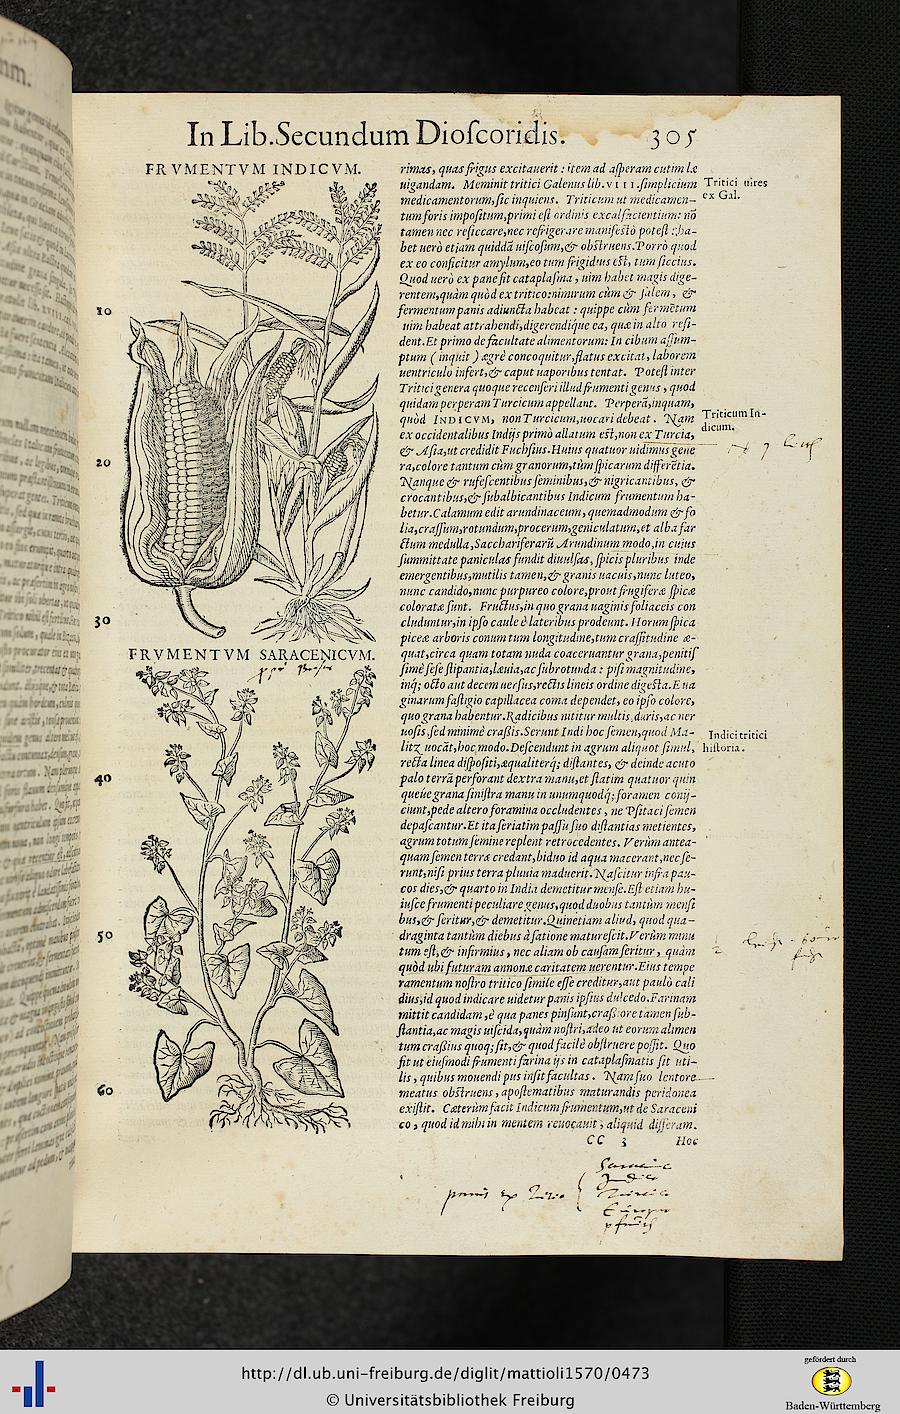 In Lib. Secundum Dioſcoridis. 305
FRVMENTVM INDICVM.
FRVMENTVM SARACENICVM.
10
20
30
40
50
60
rimas, quas frigus excitauerit : item ad aſperam cutim læ
uigandam. Meminit tritici Galenus lib. VIII. ſimplicium
medicamentorum, ſic inquiens. Triticum ut medicamen-
tum foris impoſitum, primi eſt ordinis excalfacientium: nō
tamen nec reſiccare, nec refrigerare manifeſtò poteſt : ha-
bet uerò etiam quiddā uiſcoſum, & obſtruens. Porrò quod
ex eo conficitur amylum, eo tum frigidius eſt, tum ſiccius.
Quod uerò ex pane fit cataplaſma, uim habet magis dige-
rentem, quàm quòd ex tritico: nimirum cùm & ſalem, &
fermentum panis adiuncta habeat : quippe cùm fermētum
uim habeat attrahendi, digerendique ea, quæ in alto reſi-
dent. Et primo de facultate alimentorum: In cibum aſſum-
ptum ( inquit ) ægrè concoquitur, flatus excitat, laborem
uentriculo infert, & caput uaporibus tentat. Poteſt inter
Tritici genera quoque recenſeri illud frumenti genus, quod
quidam perperam Turcicum appellant. Perperā, inquam,
quòd INDICVM, non Turcicum, uocari debeat. Nam
ex occidentalibus Indijs primò allatum eſt, non ex Turcia,
& Aſia, ut credidit Fuchſius. Huius quatuor uidimus gene
ra, colore tantum cùm granorum, tùm ſpicarum differētia.
Nanque & rufeſcentibus ſeminibus, & nigricantibus, &
crocantibus, & ſubalbicantibus Indicum frumentum ha-
betur. Calamum edit arundinaceum, quemadmodum & fo
lia, craſſum, rotundum, procerum, geniculatum, et alba far
ctum medulla, Sacchariferarū Arundinum modo, in cuius
ſummitate paniculas fundit diuulſas, ſpicis pluribus inde
emergentibus, mutilis tamen, & granis uacuis, nunc luteo,
nunc candido, nunc purpureo colore, prout frugiferæ ſpicæ
coloratæ ſunt. Fructus, in quo grana uaginis foliaceis con
cluduntur, in ipſo caule è lateribus prodeunt. Horum ſpica
piceæ arboris conum tum longitudine, tum craſſitudine æ-
quat, circa quam totam nuda coaceruantur grana, penitiſ
ſimè ſeſe ſtipantia, læuia, ac ſubrotunda : piſi magnitudine,
inq; octo aut decem uerſus, rectis lineis ordine digeſta. E ua
ginarum faſtigio capillacea coma dependet, eo ipſo colore,
quo grana habentur. Radicibus nititur multis, duris, ac ner
uoſis, ſed minimè craſſis. Serunt Indi hoc ſemen, quod Ma-
litz uocāt, hoc modo. Deſcendunt in agrum aliquot ſimul,
recta linea diſpoſiti, æqualiterq; diſtantes, & deinde acuto
palo terrā perforant dextra manu, et ſtatim quatuor quin
queúe grana ſiniſtra manu in unumquodq; foramen conij-
ciunt, pede altero foramina occludentes, ne Pſitaci ſemen
depaſcantur. Et ita ſeriatim paſſu ſuo diſtantias metientes,
agrum totum ſemine replent retrocedentes. Verùm antea-
quam ſemen terræ credant, biduo id aqua macerant, nec ſe-
runt, niſi prius terra pluuia maduerit. Naſcitur infra pau-
cos dies, & quarto in India demetitur menſe. Eſt etiam hu-
iuſce frumenti peculiare genus, quod duobus tantùm menſi
bus, & ſeritur, & demetitur. Quinetiam aliud, quod qua-
draginta tantùm diebus à ſatione matureſcit. Verùm minu
tum eſt, & infirmius, nec aliam ob cauſam ſeritur, quàm
quòd ubi futuram annonæ caritatem uerentur. Eius tempe
ramentum noſtro tritico ſimile eſſe creditur, aut paulò cali
dius, id quod indicare uidetur panis ipſius dulcedo. Farinam
mittit candidam, è qua panes pinſunt, craſſiore tamen ſub-
ſtantia, ac magis uiſcida, quàm noſtri, adeo ut eorum alimen
tum craſſius quoq; ſit, & quod facilè obſtruere poſſit. Quo
fit ut eiuſmodi frumenti farina ijs in cataplaſmatis ſit uti-
lis, quibus mouendi pus inſit facultas. Nam ſuo lentore
meatus obſtruens, apoſtematibus maturandis peridonea
exiſtit. Cæterùm facit Indicum frumentum, ut de Saraceni
co, quod id mihi in mentem reuocauit, aliquid diſſeram.
CC 3 Hoc
Tritici uires
ex Gal.
Triticum In-
dicum.
Indici tritici
hiſtoria.
http://dl.ub.uni-freiburg.de/diglit/mattioli1570/0473
© Universitätsbibliothek Freiburg
gefördert durch
Baden-Württemberg